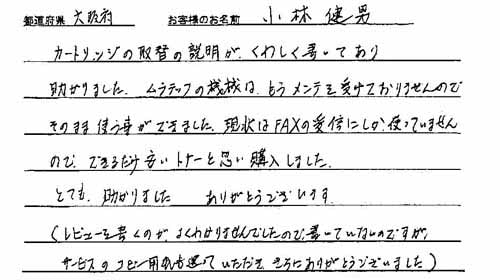 都道府県 大阪府 お客様のお名前 小林健男
カートリッジの取替の説明が、くわしく書いてあり
助かりました。ムラテックの機械は、もうメンテを受けておりませんので
そのまま使う事ができました。現状はFAXの受信にしか使っていません
ので、できるだけ安いトナーと思い購入しました。
とても、助かりました ありがとうございます。
(レビューを書くのが、よくわかりませんでしたので、書いていないのですが、
サービスのコピー用紙も送っていただき、さらにありがとうございました)